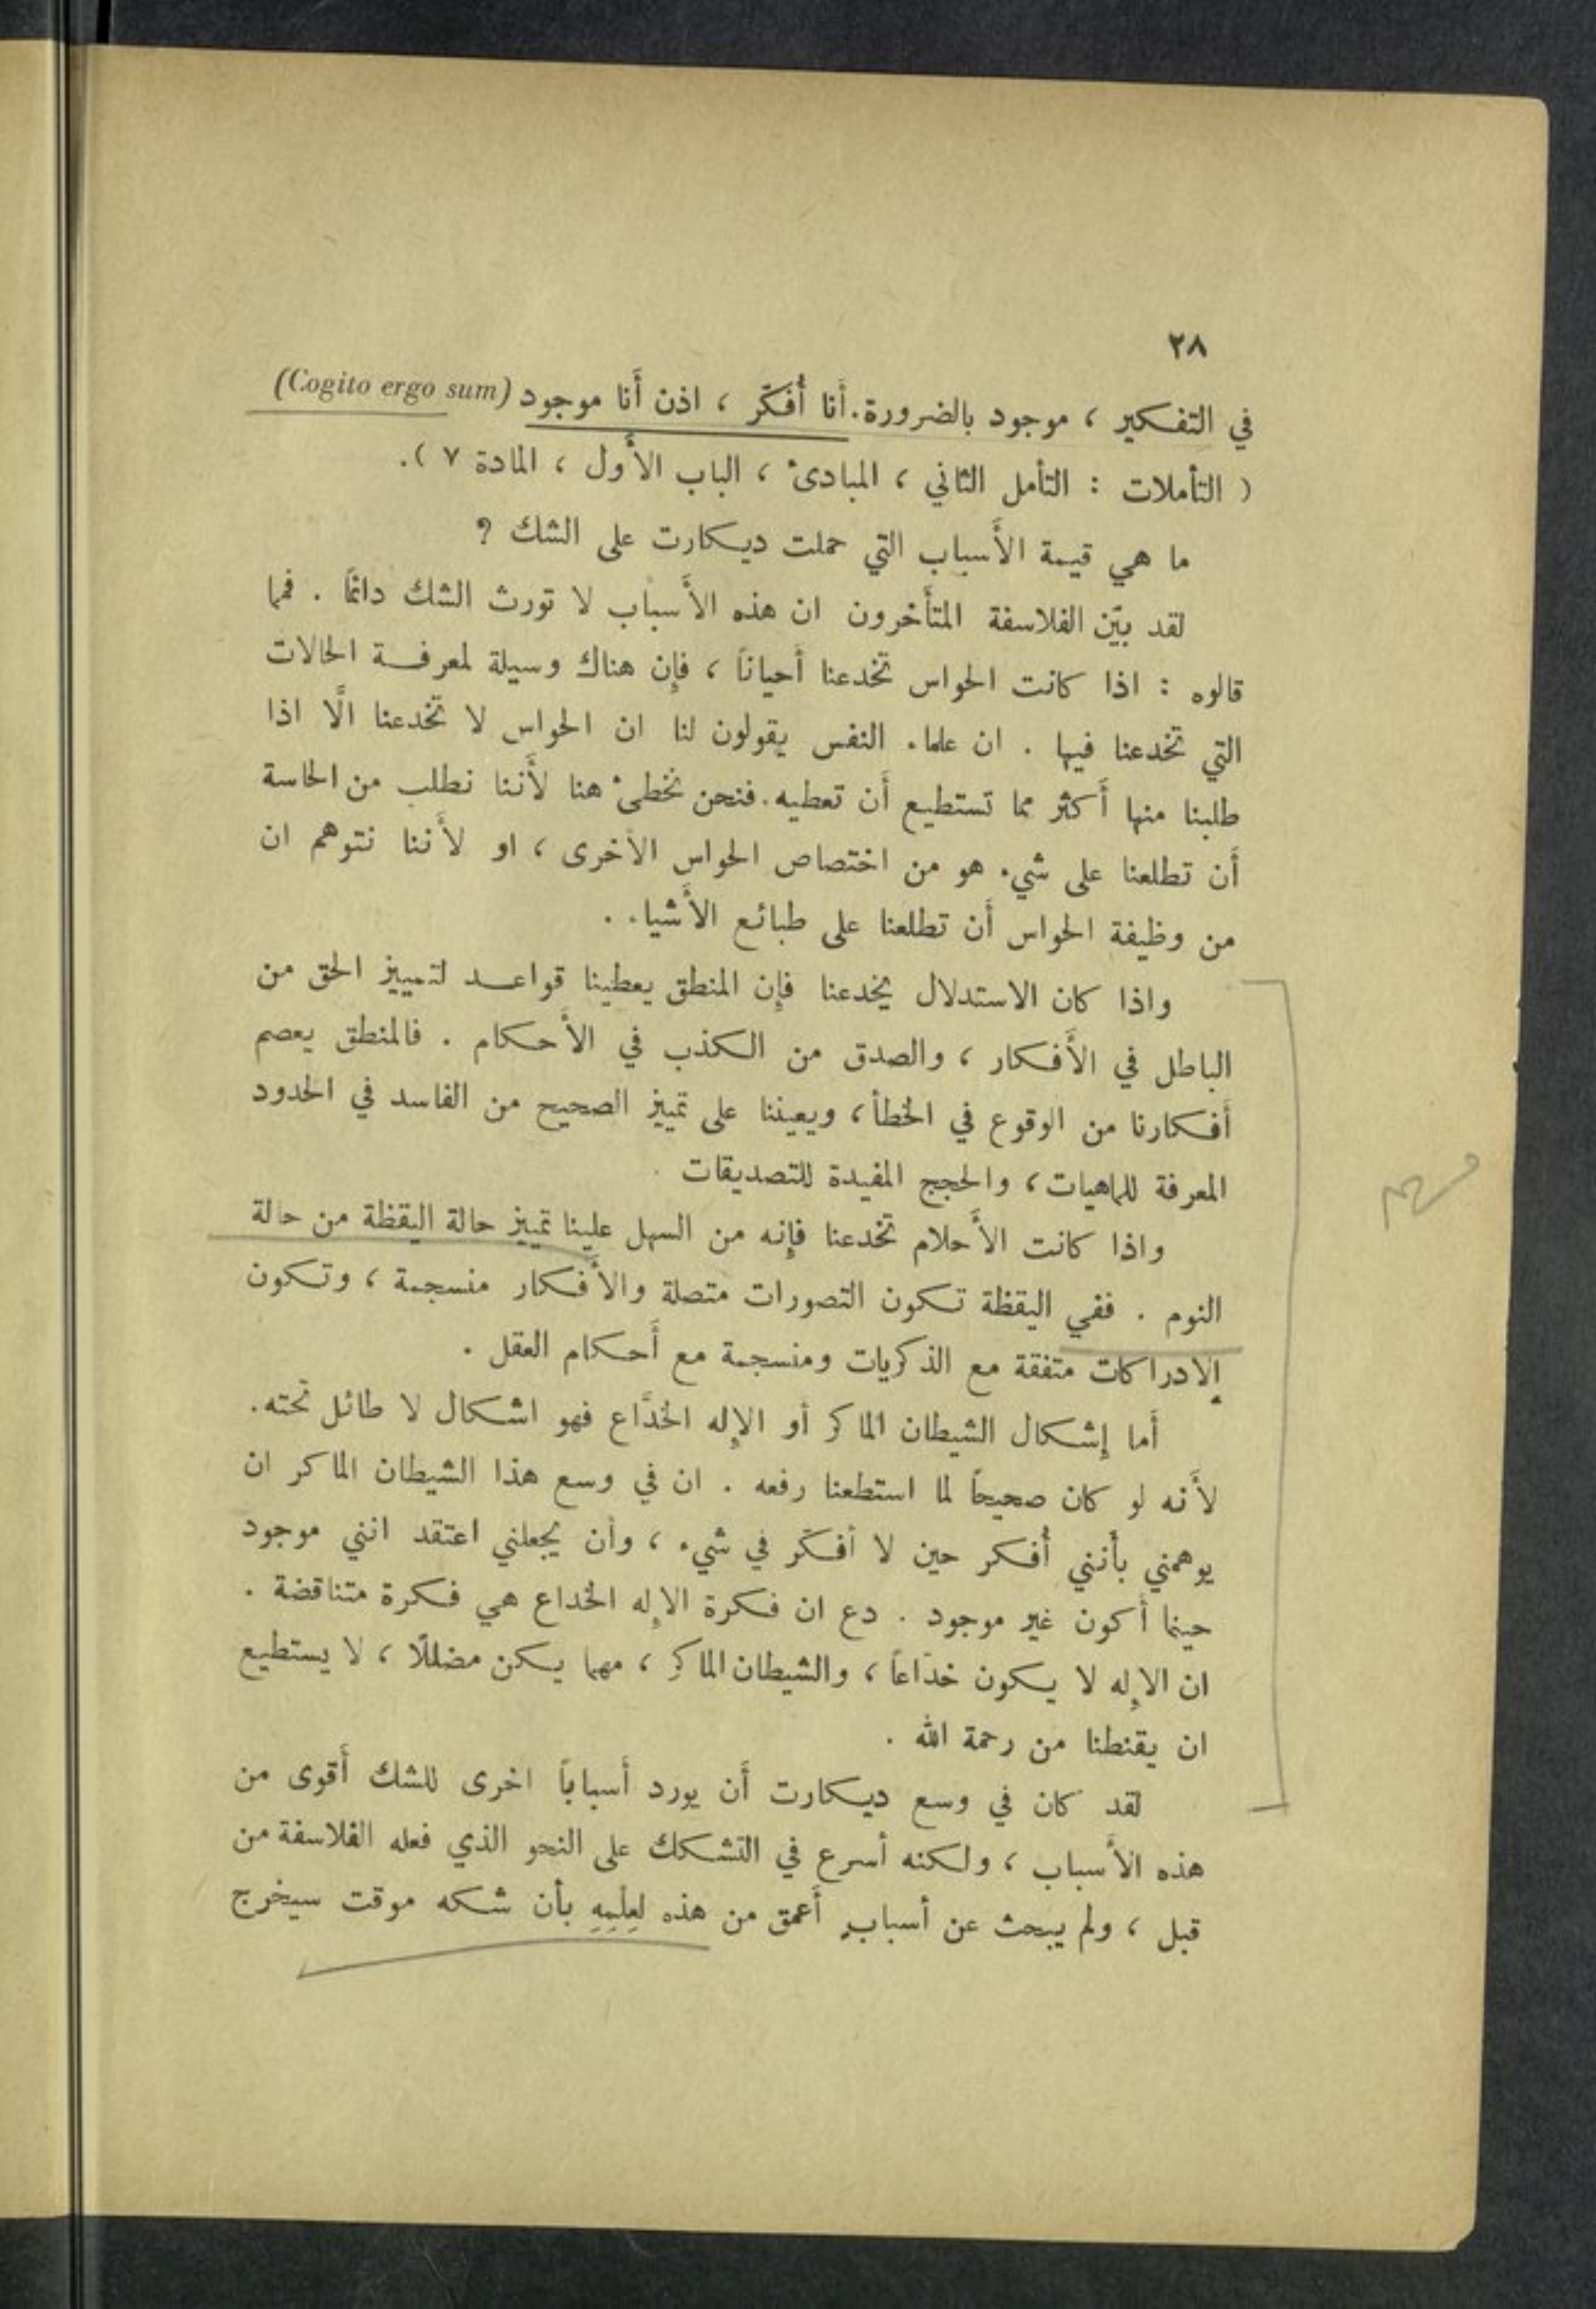 ٢٨
في التفكير ، موجود بالضرورة. أَنا أُفكّر ، اذن أَنا موجود (Cogito ergo sum)
( التأملات : التأمل الثاني ، المبادئ ، الباب الأَول ، المادة ٧ ).
ما هي قيمة الأَسباب التي حملت ديكارت على الشك ؟
لقد بيّن الفلاسفة المتأَخرون ان هذه الأَسباب لا تورث الشك دائمًا . فمما
قالوه : اذا كانت الحواس تخدعنا أَحيانًا ، فإِن هناك وسيلة لمعرفة الحالات
التي تخدعنا فيها . ان علماء النفس يقولون لنا ان الحواس لا تخدعنا الَّا اذا
طلبنا منها أَكثر مما تستطيع أَن تعطيه. فنحن نخطئ هنا لأَننا نطلب من الحاسة
أَن تطلعنا على شيء هو من اختصاص الحواس الأخرى ، او لأَننا نتوهم ان
من وظيفة الحواس أَن تطلعنا على طبائع الأَشياء .
واذا كان الاستدلال يخدعنا فإِن المنطق يعطينا قواعد لتمييز الحق من
الباطل في الأَفكار ، والصدق من الكذب في الأَحكام . فالمنطق يعصم
أَفكارنا من الوقوع في الخطأ ، ويعيننا على تمييز الصحيح من الفاسد في الحدود
المعرفة للماهيات ، والحجج المفيدة للتصديقات .
واذا كانت الأَحلام تخدعنا فإِنه من السهل علينا تمييز حالة اليقظة من حالة
النوم . ففي اليقظة تكون التصورات متصلة والأَفكار منسجمة ، وتكون
الإدراكات متفقة مع الذكريات ومنسجمة مع أَحكام العقل .
أَما إِشكال الشيطان الماكر أو الإِله الخدَّاع فهو اشكال لا طائل تحته.
لأَنه لو كان صحيحًا لما استطعنا رفعه . ان في وسع هذا الشيطان الماكر ان
يوهمني بأَنني أُفكر حين لا أفكّر في شيء ، وأن يجعلني اعتقد انني موجود
حينما أَكون غير موجود . دع ان فكرة الإِله الخداع هي فكرة متناقضة .
ان الإِله لا يكون خدّاعاً ، والشيطان الماكر ، مهما يكن مضللًا ، لا يستطيع
ان يقنطنا من رحمة الله .
لقد كان في وسع ديكارت أَن يورد أَسباباً اخرى للشك أَقوى من
هذه الأَسباب ، ولكنه أسرع في التشكك على النحو الذي فعله الفلاسفة من
قبل ، ولم يبحث عن أسبابٍ أَعمق من هذه لِعِلْمِهِ بأن شكه موقت سيخرج